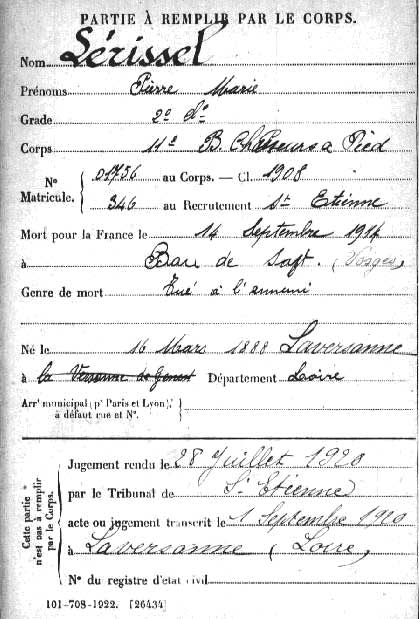 PARTIE À REMPLIR PAR LE CORPS.
Nom Lérissel
Prénoms Pierre Marie
Grade 2e Cl
Corps 11e B. Chasseurs à Pied
Nos Matricule. { 01756 au Corps. — Cl. 1908
346 au Recrutement St Etienne
Mort pour la France le 14 Septembre 1914
à Ban de Sapt. (Vosges)
Genre de mort Tué à l'ennemi
Né le 16 Mars 1888 Laversanne
à la Versanne de Genest Département Loire
Arrt municipal (pr Paris et Lyon), à défaut rue et N°.
Cette partie n'est pas à remplir par le Corps.
Jugement rendu le 28 Juillet 1920
par le Tribunal de St Etienne
acte ou jugement transcrit le 1 Septembre 1920
à Laversanne (Loire)
N° du registre d'état civil
101-708-1922. [26434]